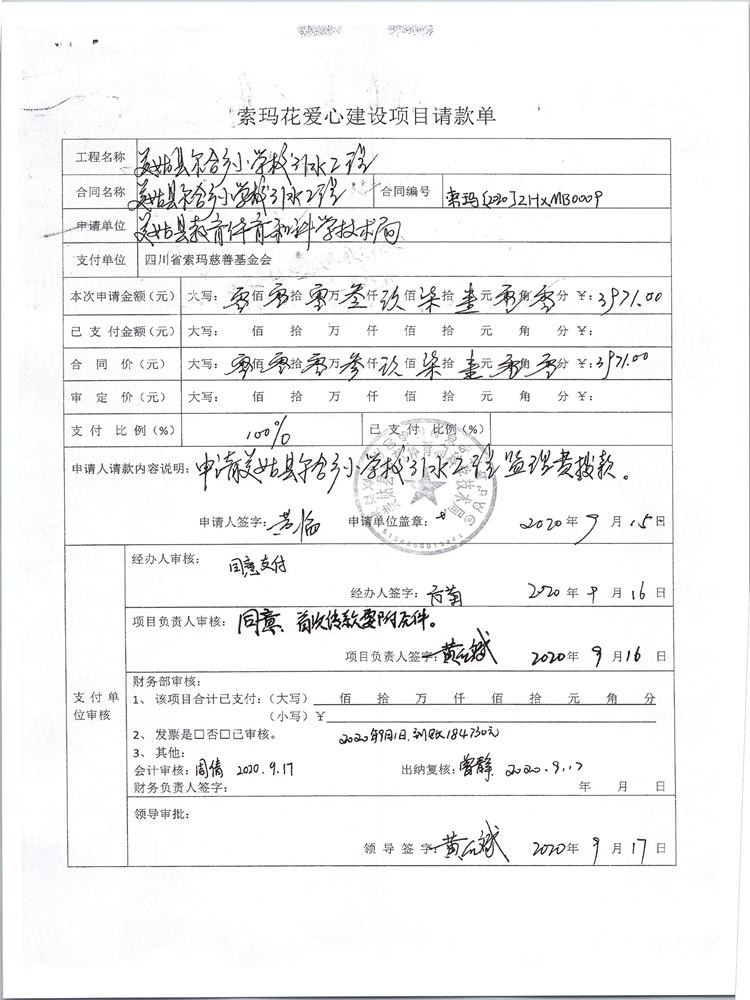 索玛花爱心建设项目请款单
工程名称 美姑县尔合乡小学校引水工程
合同名称 美姑县尔合乡小学校引水工程 合同编号 索玛[2020]ZHXMB0009
申请单位 美姑县教育体育和科学技术局
支付单位 四川省索玛慈善基金会
本次申请金额（元） 大写：零佰零拾零万叁仟玖佰柒拾壹元零角零分 ¥：3971.00
已支付金额（元） 大写： 佰 拾 万 仟 佰 拾 元 角 分 ¥：
合同价（元） 大写：零佰零拾零万叁仟玖佰柒拾壹元零角零分 ¥：3971.00
审定价（元） 大写： 佰 拾 万 仟 佰 拾 元 角 分 ¥：
支付比例(%) 100% 已支付比例(%)
申请人请款内容说明：申请美姑县尔合乡小学校引水工程监理费拨款。
申请人签字： 申请单位盖章： 2020年9月15日
支付单位审核
经办人审核：
同意支付
经办人签字： 2020年9月16日
项目负责人审核：同意、首次付款要附合同。
项目负责人签字： 2020年9月16日
财务部审核：
1、该项目合计已支付：（大写） 佰 拾 万 仟 佰 拾 元 角 分
（小写）¥
2、发票是□否□已审核。 2020年9月1日.到账184730元
3、其他：
会计审核：周倩 2020.9.17 出纳复核：曾静 2020.9.17
财务负责人签字： 年 月 日
领导审批：
领导签字： 2020年9月17日